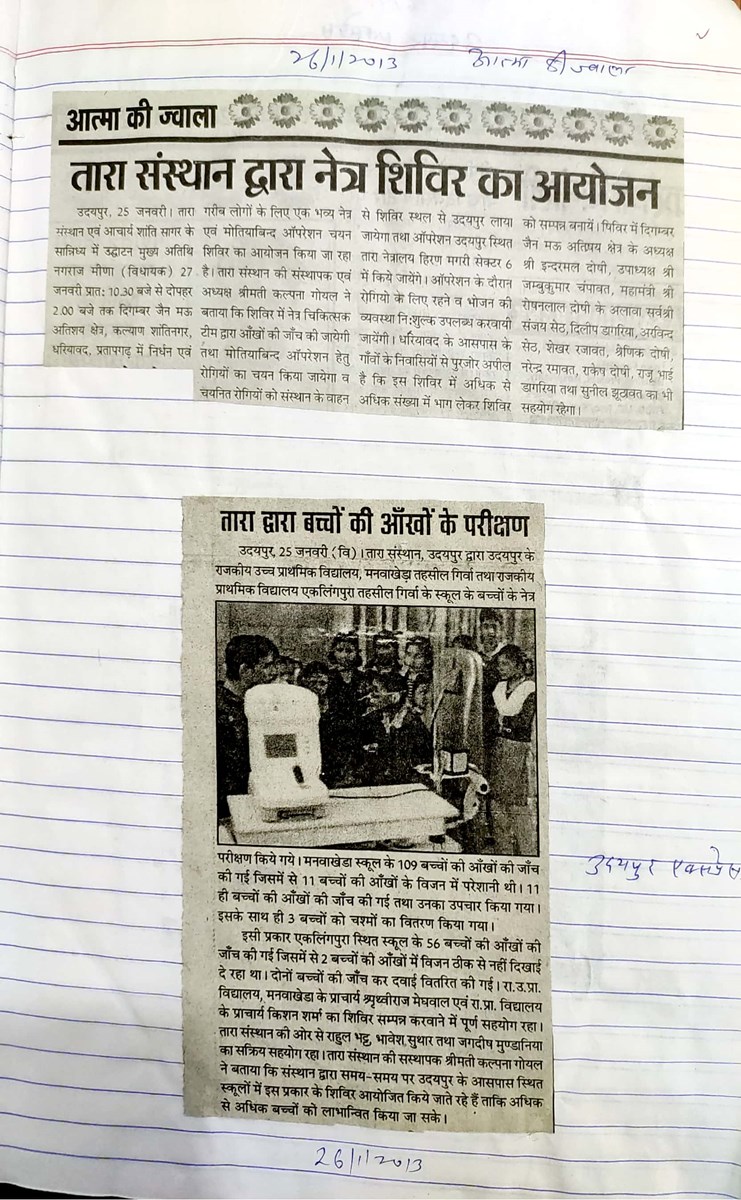 26/1/2013 आत्मा की ज्वाला
आत्मा की ज्वाला
तारा संस्थान द्वारा नेत्र शिविर का आयोजन
उदयपुर, 25 जनवरी। तारा
संस्थान एवं आचार्य शांति सागर के
सान्निध्य में उद्घाटन मुख्य अतिथि
नगराज मीणा (विधायक) 27
जनवरी प्रात: 10.30 बजे से दोपहर
2.00 बजे तक दिगम्बर जैन मऊ
अतिशय क्षेत्र, कल्याण शांतिनगर,
धरियावद, प्रतापगढ़ में निर्धन एवं
गरीब लोगों के लिए एक भव्य नेत्र
एवं मोतियाबिन्द ऑपरेशन चयन
शिविर का आयोजन किया जा रहा
है। तारा संस्थान की संस्थापक एवं
अध्यक्ष श्रीमती कल्पना गोयल ने
बताया कि शिविर में नेत्र चिकित्सक
टीम द्वारा आँखों की जाँच की जायेगी
तथा मोतियाबिन्द ऑपरेशन हेतु
रोगियों का चयन किया जायेगा व
चयनित रोगियों को संस्थान के वाहन
से शिविर स्थल से उदयपुर लाया
जायेगा तथा ऑपरेशन उदयपुर स्थित
तारा नेत्रालय हिरण मगरी सेक्टर 6
में किये जायेंगे। ऑपरेशन के दौरान
रोगियो के लिए रहने व भोजन की
व्यवस्था नि:शुल्क उपलब्ध करवायी
जायेंगी। धरियावद के आसपास के
गाँवों के निवासियों से पुरजोर अपील
है कि इस शिविर में अधिक से
अधिक संख्या में भाग लेकर शिविर
को सम्पन्न बनायें। षिविर में दिगम्बर
जैन मऊ अतिषय क्षेत्र के अध्यक्ष
श्री इन्दरमल दोषी, उपाध्यक्ष श्री
जम्बुकुमार चंपावत, महामंत्री श्री
रोषनलाल दोषी के अलावा सर्वश्री
संजय सेठ, दिलीप डागरिया, अरविन्द
सेठ, शेखर रजावत, श्रेणिक दोषी,
नरेन्द्र रमावत, राकेष दोषी, राजू भाई
डागरिया तथा सुनील झूठावत का भी
सहयोग रहेगा।
तारा द्वारा बच्चों की आँखों के परीक्षण
उदयपुर, 25 जनवरी (वि)। तारा संस्थान, उदयपुर द्वारा उदयपुर के
राजकीय उच्च प्राथमिक विद्यालय, मनवाखेड़ा तहसील गिर्वा तथा राजकीय
प्राथमिक विद्यालय एकलिंगपुरा तहसील गिर्वा के स्कूल के बच्चों के नेत्र
परीक्षण किये गये। मनवाखेडा स्कूल के 109 बच्चों की आँखों की जाँच
की गई जिसमें से 11 बच्चों की आँखों के विजन में परेशानी थी। 11
ही बच्चों की आँखों की जाँच की गई तथा उनका उपचार किया गया।
इसके साथ ही 3 बच्चों को चश्मों का वितरण किया गया।
इसी प्रकार एकलिंगपुरा स्थित स्कूल के 56 बच्चों की आँखों की
जाँच की गई जिसमें से 2 बच्चों की आँखों में विजन ठीक से नहीं दिखाई
दे रहा था। दोनों बच्चों की जाँच कर दवाई वितरित की गई। रा.उ.प्रा.
विद्यालय, मनवाखेडा के प्राचार्य श्रृथ्वीराज मेघवाल एवं रा.प्रा. विद्यालय
के प्राचार्य किशन शर्मा का शिविर सम्पन्न करवाने में पूर्ण सहयोग रहा।
तारा संस्थान की ओर से राहुल भट्ट, भावेश सुथार तथा जगदीष मुण्डानिया
का सक्रिय सहयोग रहा। तारा संस्थान की सस्थापक श्रीमती कल्पना गोयल
ने बताया कि संस्थान द्वारा समय-समय पर उदयपुर के आसपास स्थित
स्कूलों में इस प्रकार के शिविर आयोजित किये जाते रहे हैं ताकि अधिक
से अधिक बच्चों को लाभान्वित किया जा सके।
उदयपुर एक्सप्रेस
26/1/2013